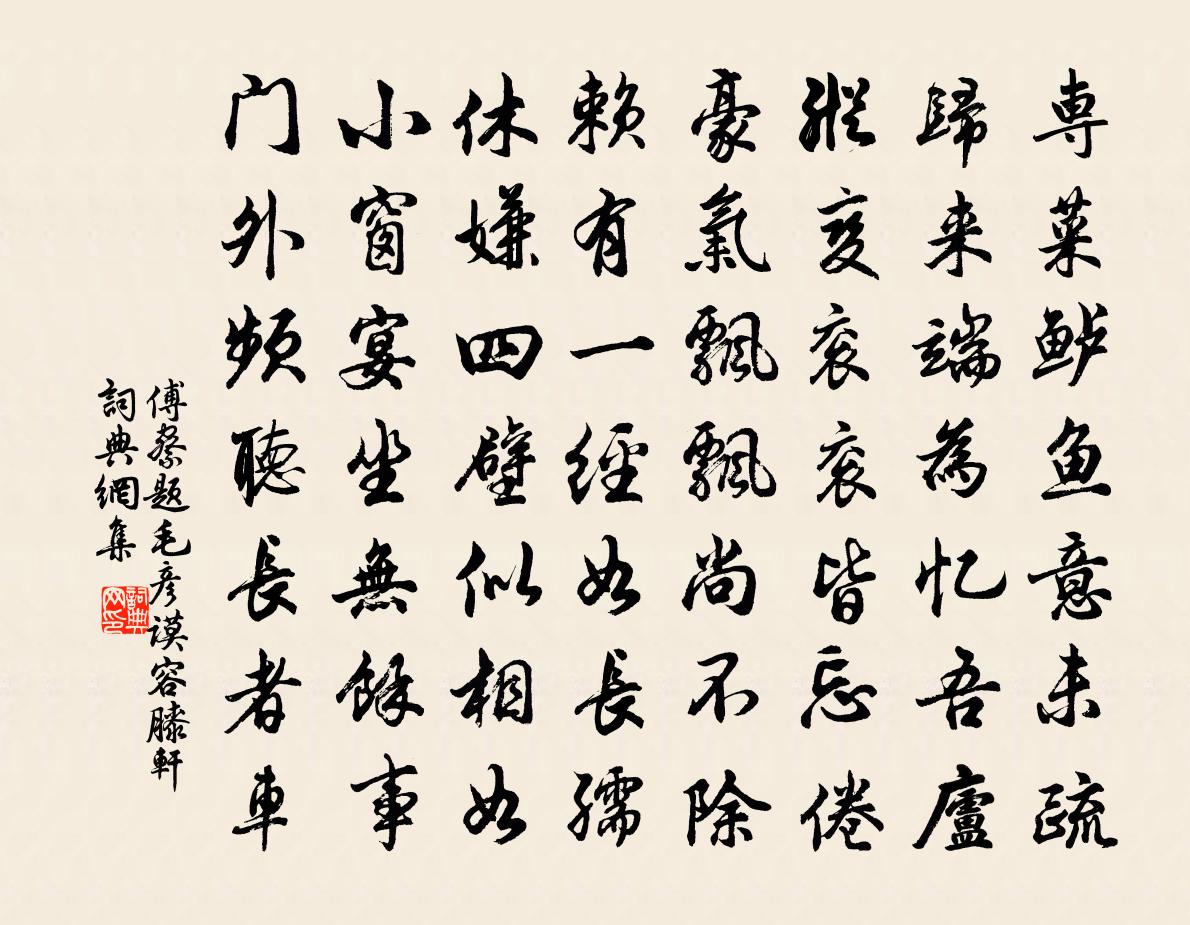 専菜鲈鱼意未疏
歸来端為忆吾廬
縱変衮衮皆忘倦
豪氣飄飄尚不除
赖有一經如長孺
休嫌四壁似相如
小窗宴坐無餘事
门外频聽長者車
傅察题毛彦谟容膝軒
詞典網集
詞典网印